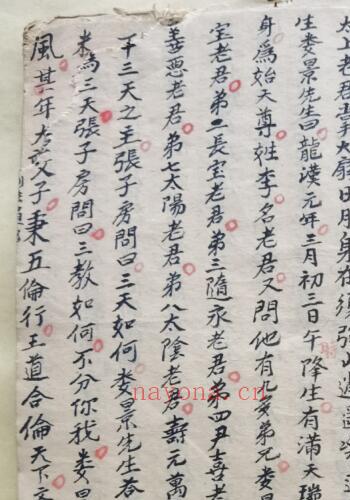 太上老君
生娄景先生曰龍漢元年三月初三日午時降生有滿天瑞
身為始天尊姓李名老君又問他有几多弟兄娄
宝老君弟二長宝老君弟三隨永老君弟四尹喜老
善惡老君弟七太陽老君弟八太陰老君壽元萬
下三天之主張子房問曰三天如何娄景先生答
来為三天張子房問曰三教如何不分你我娄景
風其年老父子秉五倫行王道合倫天下
nayona.cn